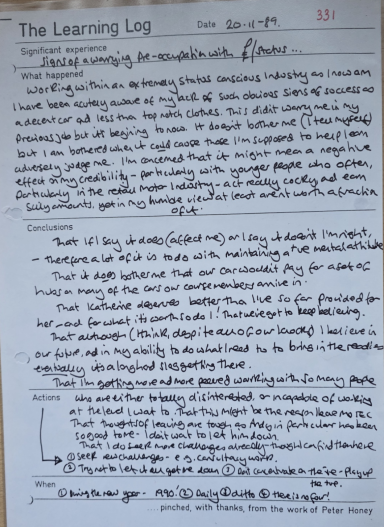 331
The Learning Log
Date 20-11-89.
Significant experience
Signs of a worrying pre-occupation with £/status...
What happened
Working within an extremely status conscious Industry as I now am
I have been acutely aware of my lack of such obvious signs of success as
a decent car and less than top notch clothes. This didn't worry me in my
previous job but it's begining to now. It doesn't bother me (I tell myself)
but I am bothered when it could cause those I'm supposed to help learn
adversely judge me. I'm concerned that it might mean a negative
effect on my credibility - particularly with younger people who often,
particularly in the retail motor Industry - act really cocky and earn
silly amounts, yet in my humble view at least aren't worth a fraction
of it.
Conclusions
That if I say it does (affect me) or I say it doesn't I'm right,
- therefore a lot of it is to do with maintaining a +ve mental attitude
That it does bother me that our car wouldn't pay for a set of
hubs on many of the cars our course members arrive in.
That Katherine deserves better than I've so far provided for
her - and for what it's worth so do I! That we've got to keep believing.
That although (I think, despite all of our knocks) I believe in
our future, and in my ability to do what I need to to bring in the readies
eventually it's a long hard slog getting there.
That I'm getting more and more peeved working with so many people
Actions who are either totally disinterested, or incapable of working
at the level I want to. That this might be the reason I leave
That thoughts of leaving are tough as Andy in particular has been
so good to me - I don't want to let him down.
That I do seek more challenges already - though can find them here
① Seek new challenges - e.g. consultancy work.
② Try not to let it all get me down ③ Don't concentrate on the -ve - play up
the +ve.
When
① During the new year - 1990! ② Daily ③ ditto
.... pinched, with thanks, from the work of Peter Honey